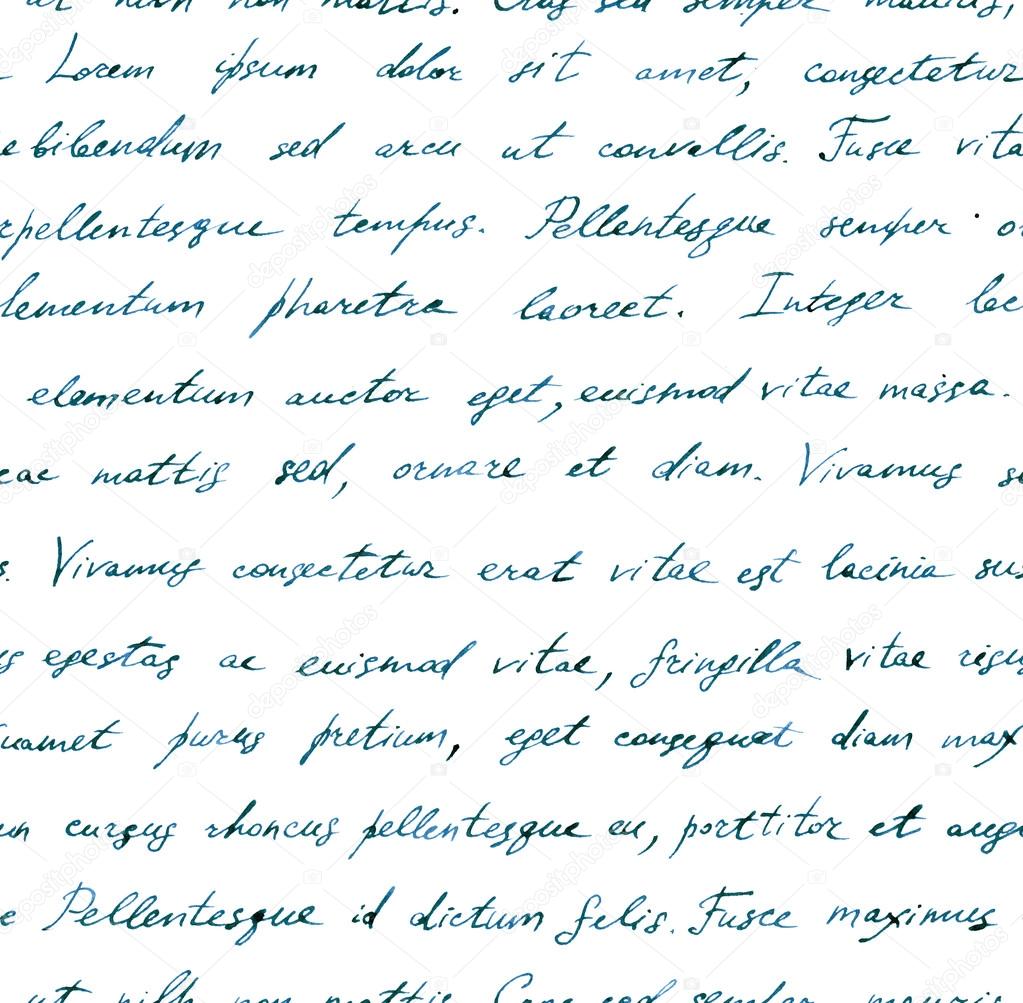 non mattis. Cras sed semper mauris,
Lorem ipsum dolor sit amet, consectetur
e bibendum sed arcu ut convallis. Fusce vita
rpellentesque tempus. Pellentesque semper
lementum pharetra laoreet. Integer
elementum auctor eget, euismod vitae massa.
cac mattis sed, ornare et diam. Vivamus
s. Vivamus consectetur erat vitae est lacinia sus
us egestas ac euismod vitae, fringilla vitae risus
uamet purus pretium, eget consequat diam max
un cursus rhoncus pellentesque eu, porttitor et augu
e Pellentesque id dictum felis. Fusce maximus
ut nibh non mattis. Cras sed semper mauris